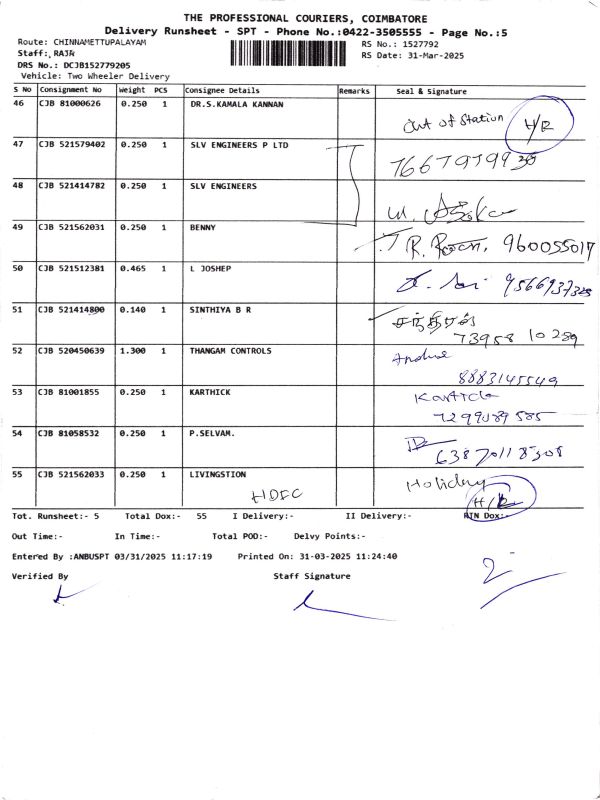 THE PROFESSIONAL COURIERS, COIMBATORE
Delivery Runsheet - SPT - Phone No.:0422-3505555 - Page No.:5
Route: CHINNAMETTUPALAYAM RS No.: 1527792
Staff: RAJA RS Date: 31-Mar-2025
DRS No.: DCJB152779205
Vehicle: Two Wheeler Delivery
S No Consignment No Weight PCS Consignee Details Remarks Seal & Signature
46 CJB 81000626 0.250 1 DR.S.KAMALA KANNAN
Out of Station H/R
47 CJB 521579402 0.250 1 SLV ENGINEERS P LTD
48 CJB 521414782 0.250 1 SLV ENGINEERS
49 CJB 521562031 0.250 1 BENNY
50 CJB 521512381 0.465 1 L JOSHEP
51 CJB 521414800 0.140 1 SINTHIYA B R
73958 10289
52 CJB 520450639 1.300 1 THANGAM CONTROLS
8883145549
53 CJB 81001855 0.250 1 KARTHICK
Karthick
7299089585
54 CJB 81058532 0.250 1 P.SELVAM.
55 CJB 521562033 0.250 1 LIVINGSTION
Holiday
HDFC H/R
Tot. Runsheet:- 5 Total Dox:- 55 I Delivery:- II Delivery:- RTN Dox:-
Out Time:- In Time:- Total POD:- Delvy Points:-
Entered By :ANBUSPT 03/31/2025 11:17:19 Printed On: 31-03-2025 11:24:40
Verified By Staff Signature
2